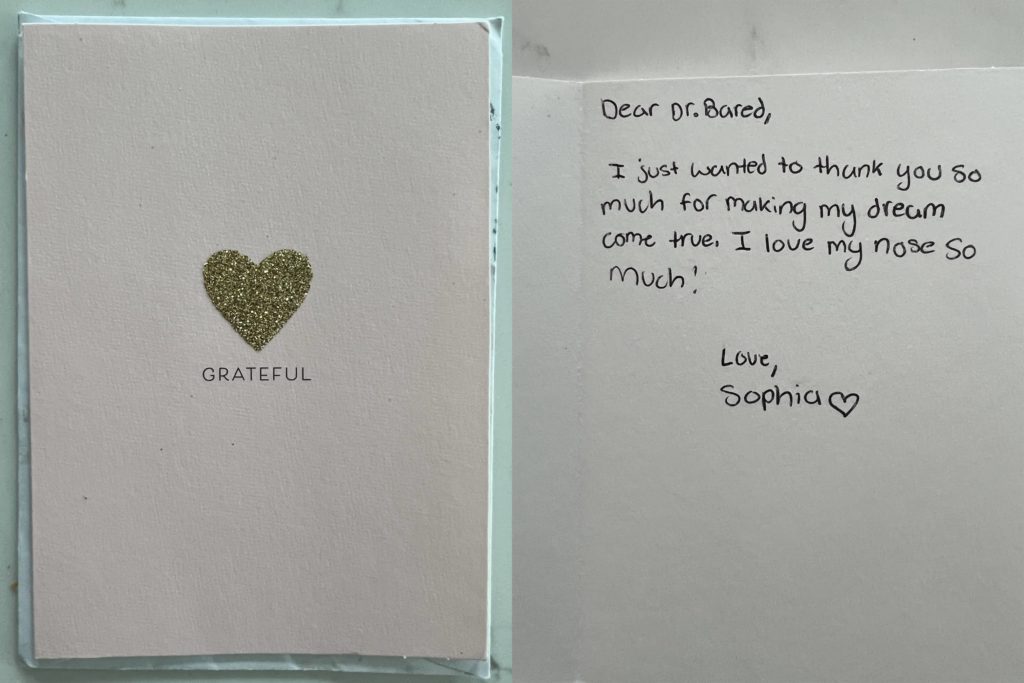 GRATEFUL
Dear Dr. Bared,
I just wanted to thank you so
much for making my dream
come true. I love my nose so
much!
Love,
Sophia